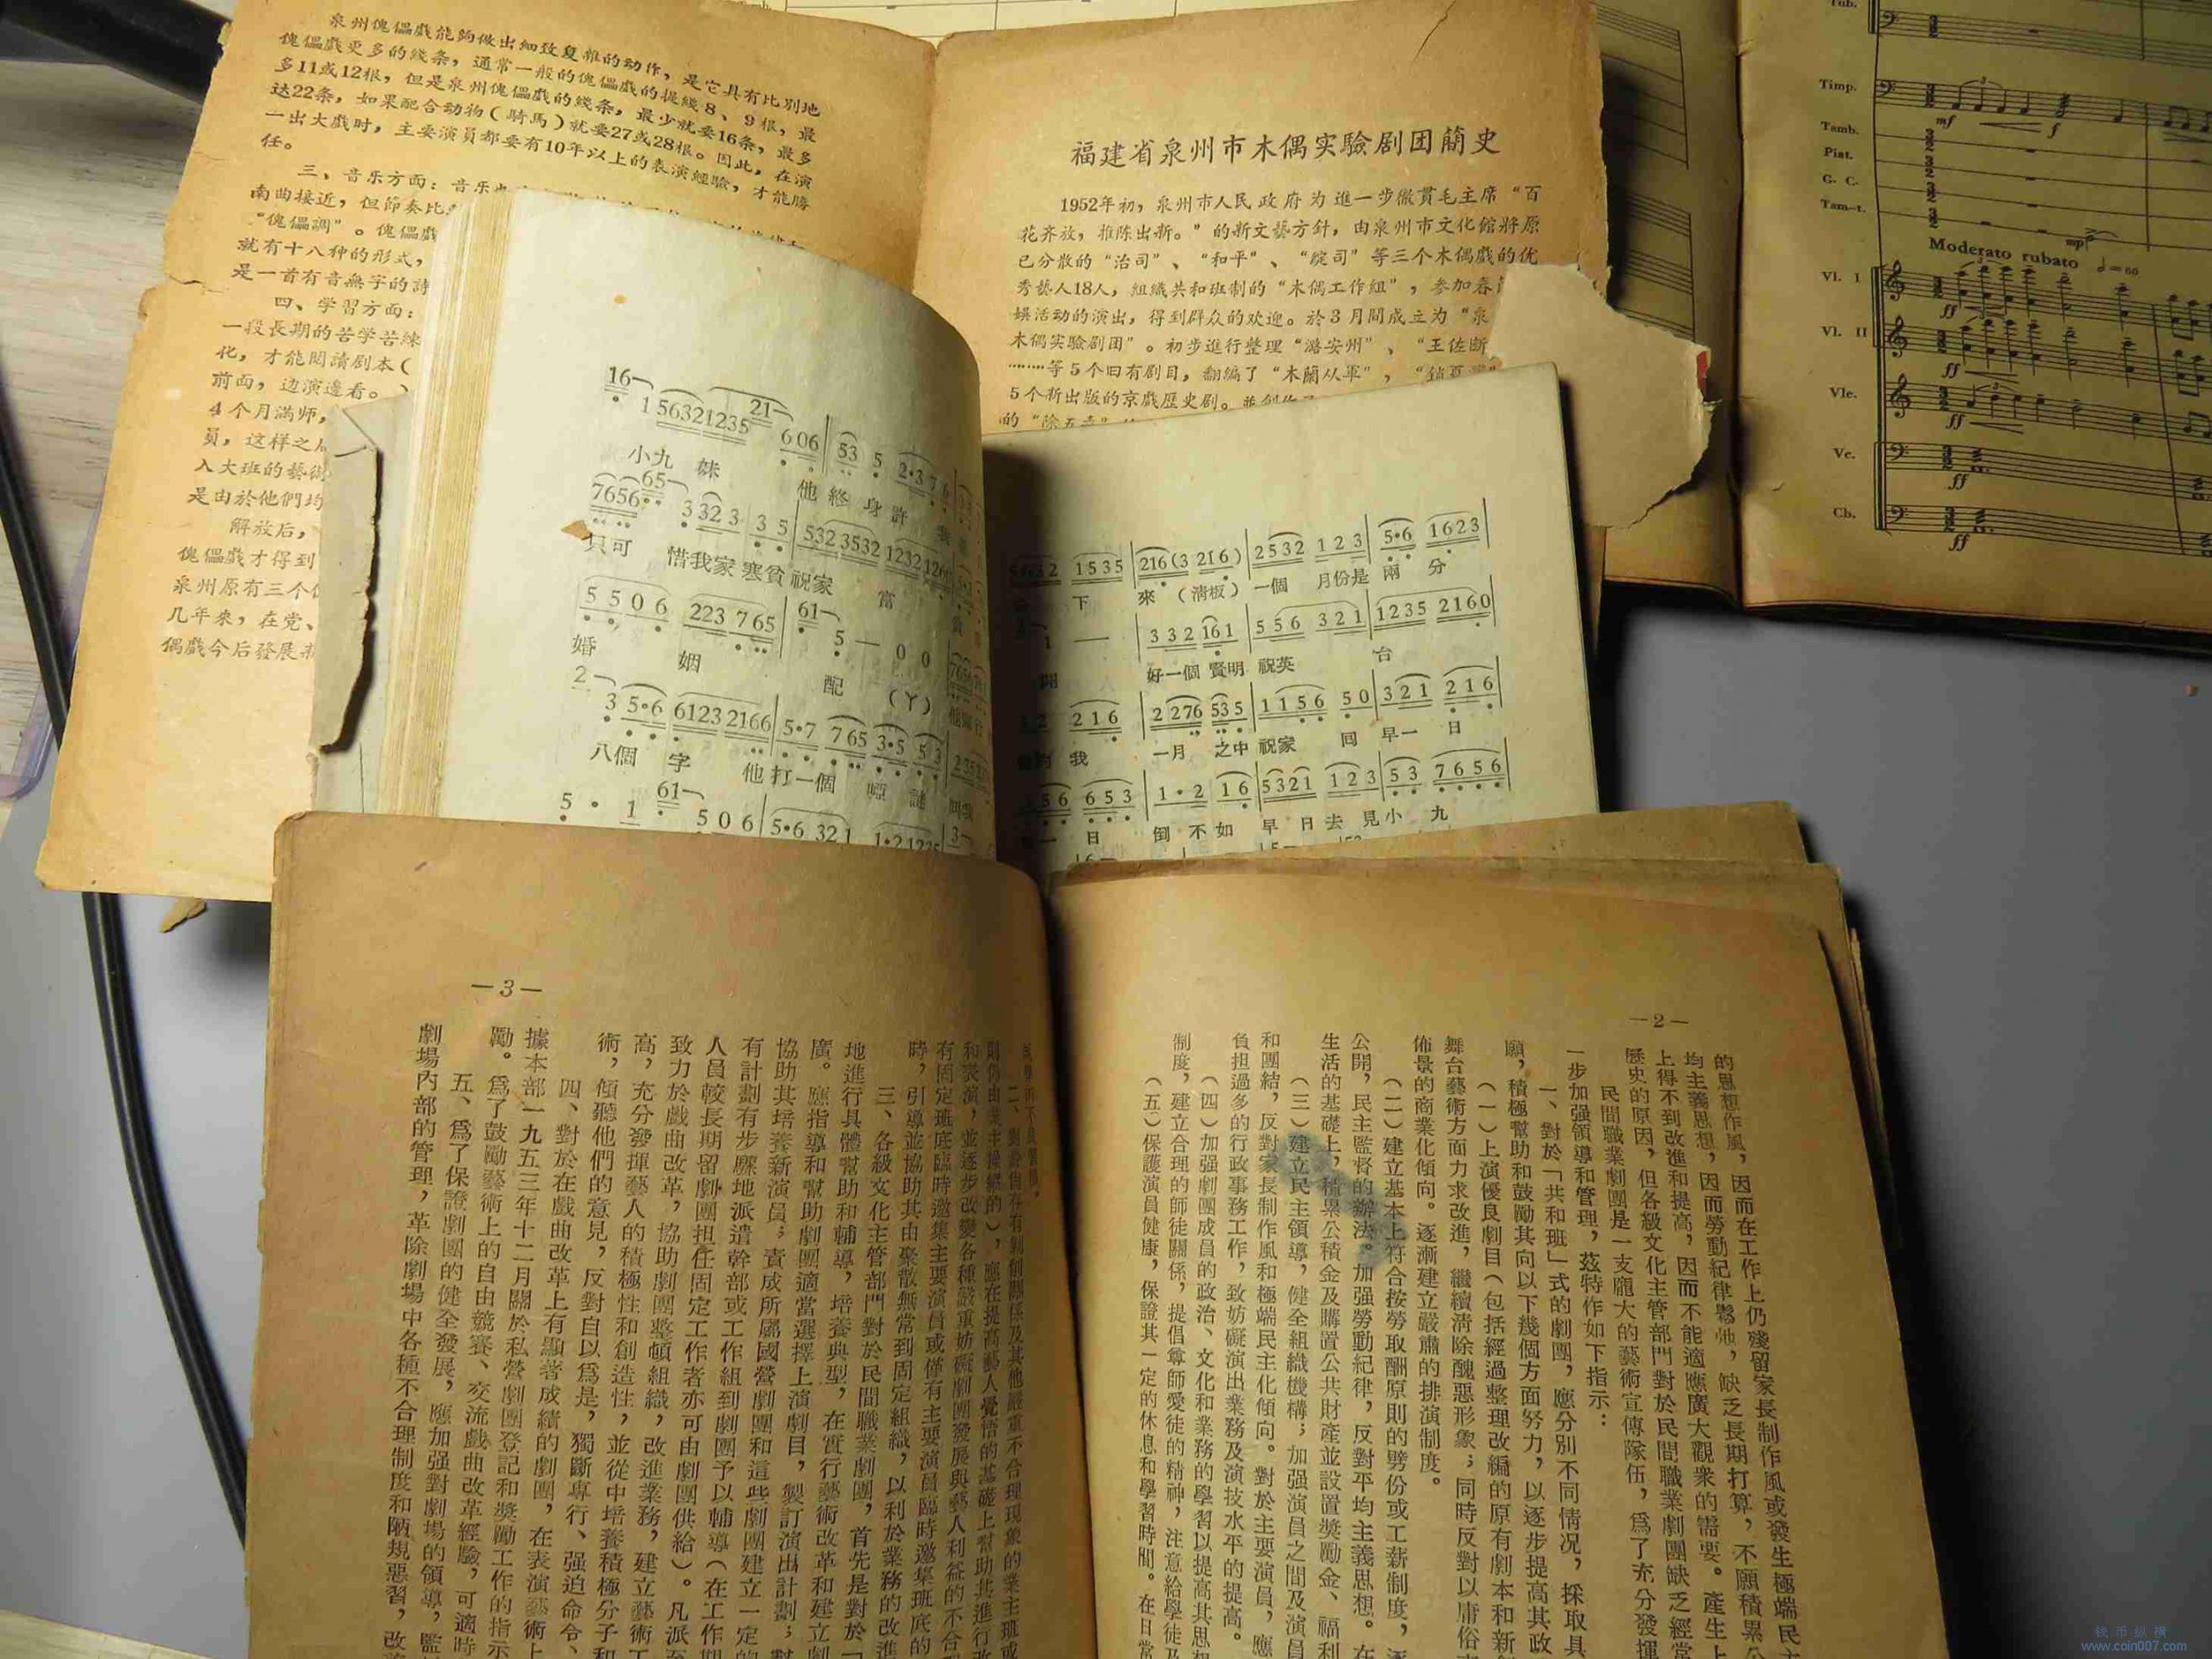 泉州傀儡戲能夠做出細致复雜的动作，是它具有比別地
傀儡戲更多的綫条，通常一般的傀儡戲的提綫8、9根，最
多11或12根，但是泉州傀儡戲的綫条，最少就要16条，最多
达22条，如果配合动物（騎馬）就要27或28根。因此，在演
一出大戲时，主要演員都要有10年以上的表演經驗，才能勝
任。
三、音乐方面：音乐
南曲接近，但節奏比
“傀儡調”。傀儡戲
就有十八种的形式，
是一首有音無字的詩
四、学習方面：
一段長期的苦学苦練
化，才能閱讀剧本（
前面，边演邊看。
4个月滿师，
員，这样之后
入大班的藝術
是由於他們均
解放后，
傀儡戲才得到
泉州原有三个
几年來，在党、
偶戲今后發展
福建省泉州市木偶实驗剧团簡史
1952年初，泉州市人民政府为進一步徹貫毛主席“百
花齐放，推陈出新。”的新文藝方針，由泉州市文化館將原
已分散的“治司”、“和平”、“綻司”等三个木偶戲的优
秀藝人18人，組織共和班制的“木偶工作組”，参加春
娛活动的演出，得到群众的欢迎。於3月間成立为“泉
木偶实驗剧团”。初步進行整理“潞安州”、“王佐断
………等5个旧有剧目，翻編了“木蘭从軍”，
5个新出版的京戲歷史剧。並創作了
的“除五毒”
Tub.
Timp.
mf f
Tamb.
Piat.
G. C.
Tam-t.
mp
Moderato rubato ♩=66
Vl. I
ff
Vl. II
ff
Vle.
ff
Vc.
ff
Cb.
ff
16 1 56321235 21 606 53 5 2·376
小九 妹 他終身許
7656 65 3 323 3 5 532 3532 1232 126
只可 惜我家寒貧祝家 富
5 5 0 6 223 765 61 5 — 0 0
婚 姻 配 （丫）
2 3 5·6 6123 2166 5·7 765 3·5 53
八個 字 他打一個 啞 謎
5 · 1 61 506 5·6 321
1535 216(3 216) 2532 123 5·6 1623
下 來（清板）一個 月份是 兩 分
1 — 332 161 556 321 1235 2160
好一個 賢明 祝英 台
216 2276 535 1156 50 321 216
我 一月 之中 祝家 囘 早一 日
56 653 1·2 16 5321 123 53 7656
一 日 倒 不如 早 日去 見小 九
—2—
的思想作風，因而在工作上仍殘留家長制作風或發生極端民主
均主義思想，因而勞動紀律鬆弛，缺乏長期打算，不願積累公
上得不到改進和提高，因而不能適應廣大觀衆的需要。產生上
歷史的原因，但各級文化主管部門對於民間職業劇團缺乏經常
民間職業劇團是一支龐大的藝術宣傳隊伍，爲了充分發揮
一步加强領導和管理，茲特作如下指示：
一、對於「共和班」式的劇團，應分別不同情況，採取具
願，積極幫助和鼓勵其向以下幾個方面努力，以逐步提高其政
（一）上演優良劇目（包括經過整理改編的原有劇本和新
舞台藝術方面力求改進，繼續清除醜惡形象；同時反對以庸俗
佈景的商業化傾向。逐漸建立嚴肅的排演制度。
（二）建立基本上符合按勞取酬原則的劈份或工薪制度，逐
公開，民主監督的辦法。加强勞動紀律，反對平均主義思想。在
生活的基礎上，積累公積金及購置公共財產並設置獎勵金、福利
（三）建立民主領導，健全組織機構；加强演員之間及演員
和團結，反對家長制作風和極端民主化傾向。對於主要演員，應
負担過多的行政事務工作，致妨礙演出業務及演技水平的提高。
（四）加强劇團成員的政治、文化和業務的學習以提高其思想
制度，建立合理的師徒關係，提倡尊師愛徒的精神，注意給學徒及
（五）保護演員健康，保證其一定的休息和學習時間。在日常
—3—
二、對於尚存有剝削關係及其他嚴重不合理現象的業主班或
則仍由業主操縱的），應在提高藝人覺悟的基礎上幫助其進行改
和表演，並逐步改變各種嚴重妨礙劇團發展與藝人利益的不合理
有固定班底臨時邀集主要演員或僅有主要演員臨時邀集班底的
時，引導並協助其由聚散無常到固定組織，以利於業務的改進
三、各級文化主管部門對於民間職業劇團，首先是對於「
地進行具體幫助和輔導，培養典型，在實行藝術改革和建立劇
廣。應指導和幫助劇團適當選擇上演劇目，製訂演出計劃；對
協助其培養新演員；責成所屬國營劇團和這些劇團建立一定的
有計劃有步驟地派遣幹部或工作組到劇團予以輔導（在工作期
人員較長期留劇團担任固定工作者亦可由劇團供給）。凡派至
致力於戲曲改革，協助劇團整頓組織，改進業務，建立藝術工
高，充分發揮藝人的積極性和創造性，並從中培養積極分子和
術，傾聽他們的意見，反對自以爲是，獨斷專行、强迫命令、
四、對於在戲曲改革上有顯著成績的劇團，在表演藝術上
據本部一九五三年十二月關於私營劇團登記和獎勵工作的指示
勵。爲了鼓勵藝術上的自由競賽、交流戲曲改革經驗，可適時
五、爲了保證劇團的健全發展，應加强對劇場的領導，監
劇場內部的管理，革除劇場中各種不合理制度和陋規惡習，改
钱币纵横
www.coin007.com